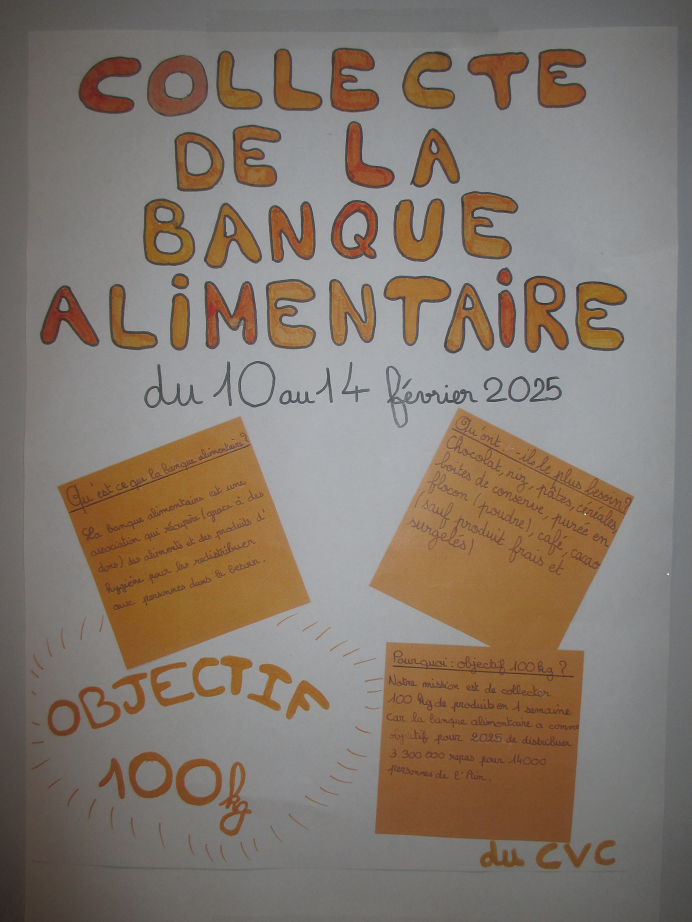 COLLECTE
DE LA
BANQUE
ALiMENTAiRE
du 10 au 14 février 2025
Qu'est ce que la banque alimentaire?
La banque alimentaire est une
association qui récupère (grace à des
dons) des aliments et des produits d'
hygiène pour les redistribuer
aux personnes dans le besoin.
Qu'ont -il le plus besoin?
Chocolat, riz, pâtes, céréales,
boites de conserve, purée en
flocon (poudre), café, cacao
(sauf produit frais et
surgelés)
OBJECTIF
100kg
Pourquoi : objectif 100 kg ?
Notre mission est de collecter
100 kg de produits en 1 semaine
car la banque alimentaire a comme
objectif pour 2025 de distribuer
3 900 000 repas pour 14000
personnes de l'Ain.
du CVC